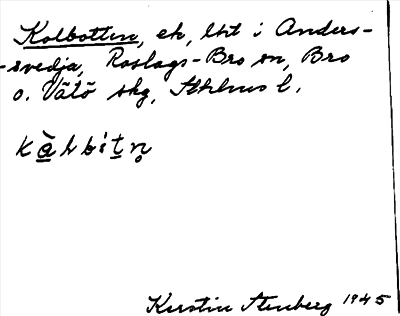 Kolbotten, ek, lht i Anders-
-svedja, Roslags-Bro sn, Bro
o. Vätö skg, Sthlms l.
Kerstin Stenberg 1945